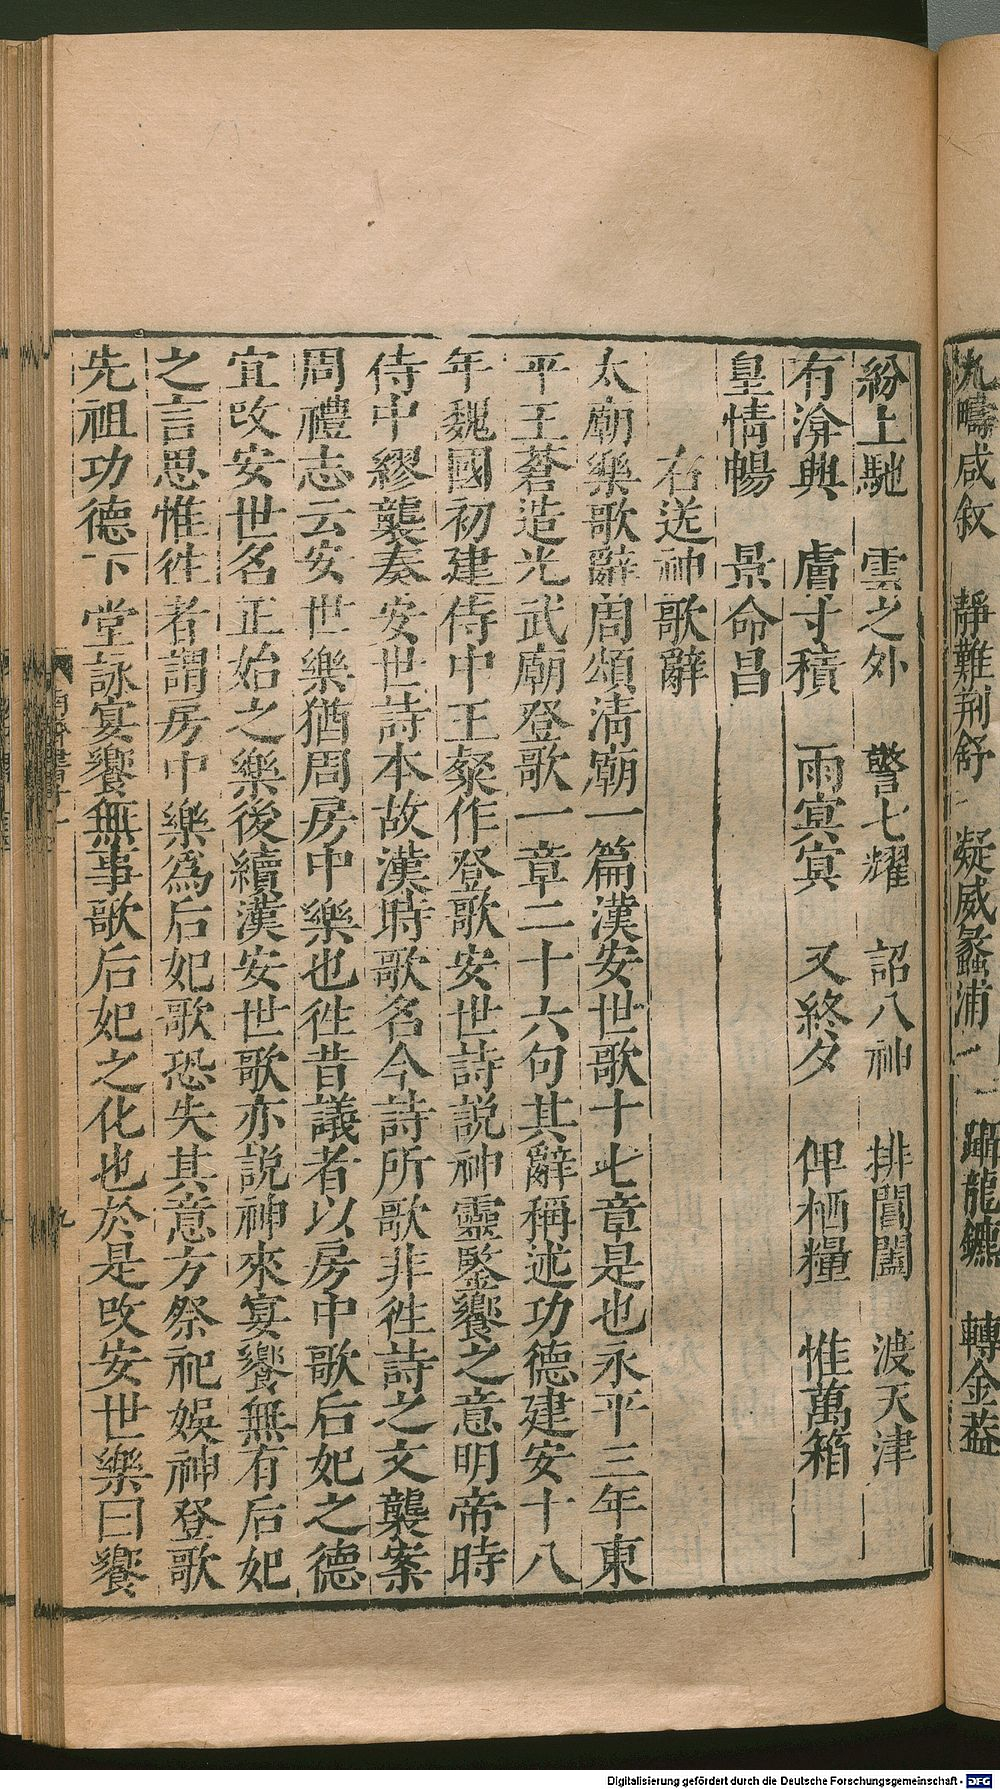 九疇咸敘　靜難荊舒　凝威蠡浦　蹕龍鑣　轉金葢
紛上馳　雲之外　警七耀　詔八神　排閶闔　渡天津
有渰興　膚寸積　雨冥冥　又終夕　俾栖糧　惟萬箱
皇情暢　景命昌
右送神歌辭
太廟樂歌辭周頌清廟一篇漢安世歌十七章是也永平三年東
平王蒼造光武廟登歌一章二十六句其辭稱述功德建安十八
年魏國初建侍中王粲作登歌安世詩說神靈鑒饗之意明帝時
侍中繆襲奏安世詩本故漢時歌名今詩所歌非往詩之文襲案
周禮志云安世樂猶周房中樂也往昔議者以房中歌后妃之德
宜改安世名正始之樂後續漢安世歌亦說神來宴饗無有后妃
之言思惟往者謂房中樂為后妃歌恐失其意方祭祀娛神登歌
先祖功德下堂詠宴饗無事歌后妃之化也於是改安世樂曰饗
九
Digitalisierung gefördert durch die Deutsche Forschungsgemeinschaft - DFG